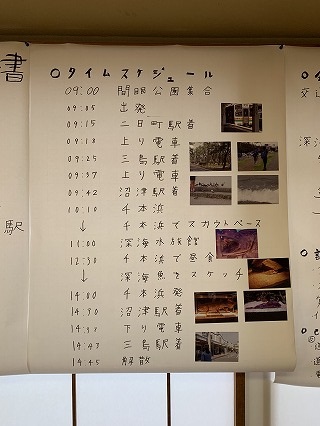 書
○タイムスケジュール
09:00 間眠公園集合
09:05 出発
09:15 二日町駅着
09:18 上り電車
09:25 三島駅着
09:37 上り電車
09:42 沼津駅着
10:10 千本浜
↓ 千本浜でスカウトペース
11:00 深海水族館
12:30 千本浜で昼食
↓ 深海魚をスケッチ
14:00 千本浜発
14:30 沼津駅着
14:37 下り電車
14:43 三島駅着
14:45 解散
駅
交
深